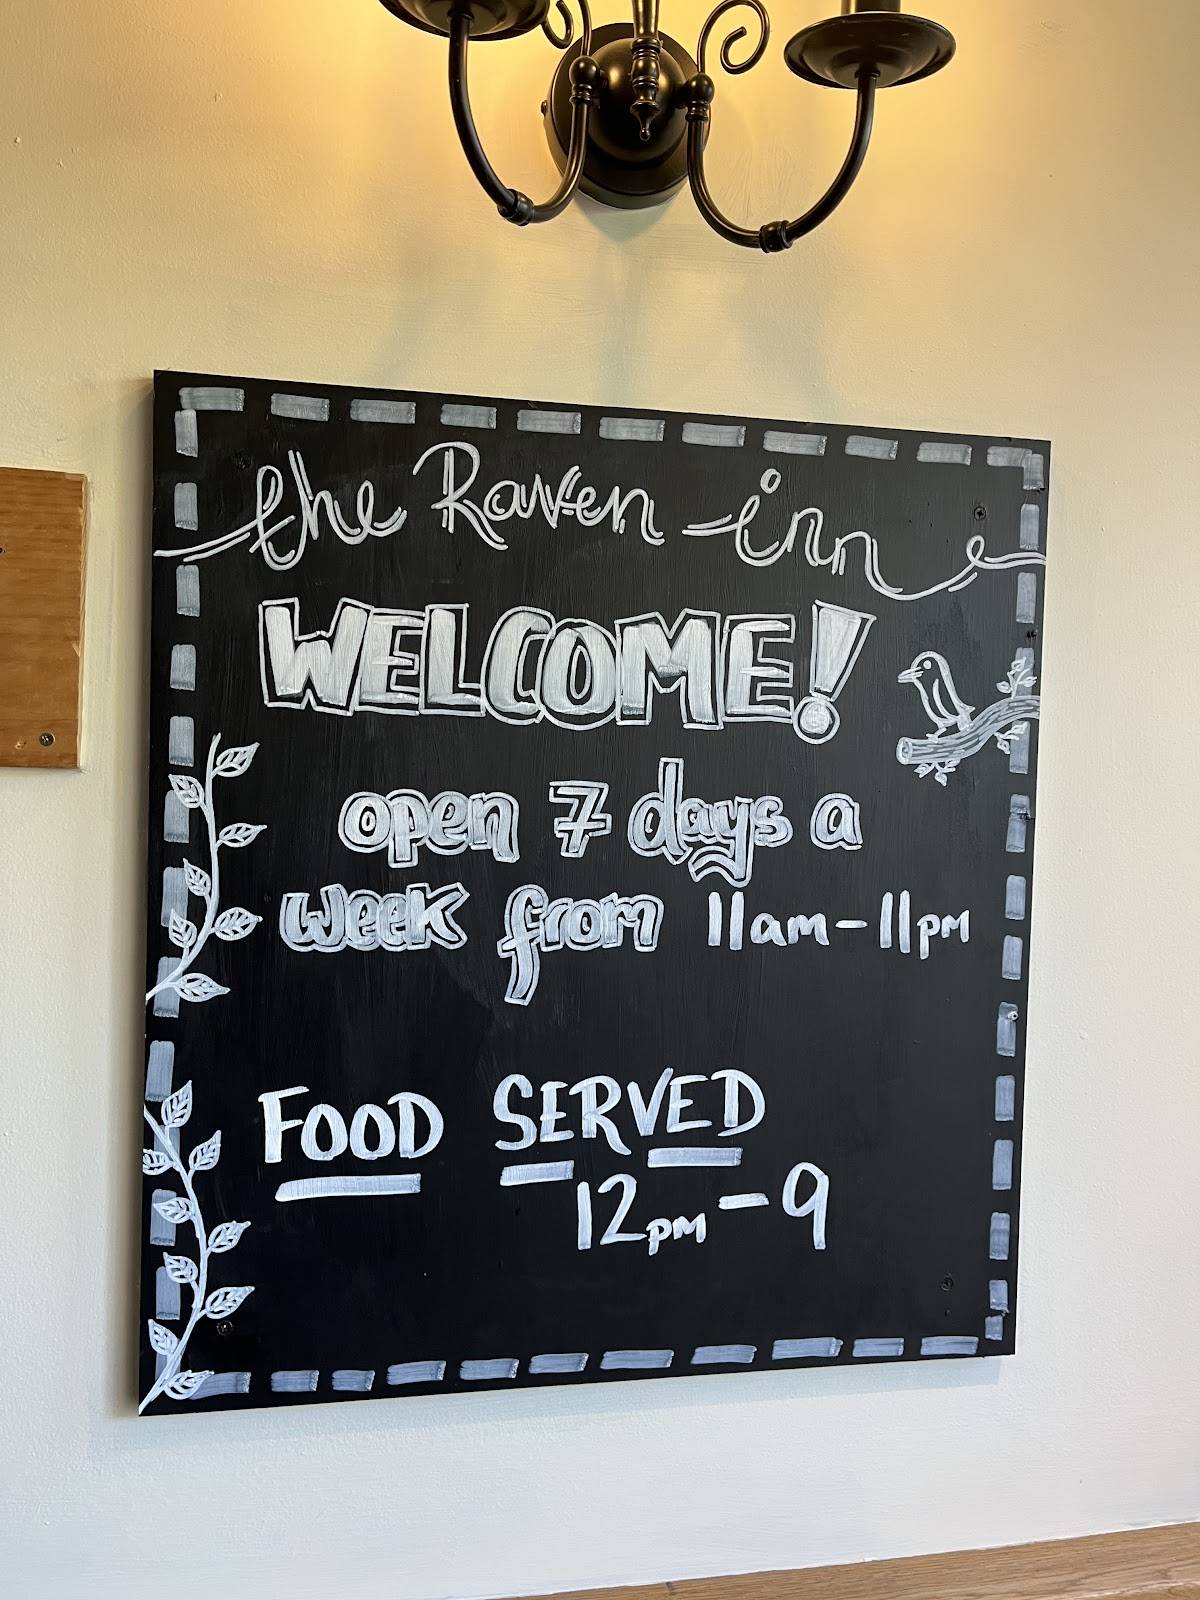 the Raven inn
WELCOME!
open 7 days a
week from 11am-11pm
FOOD SERVED
12pm-9